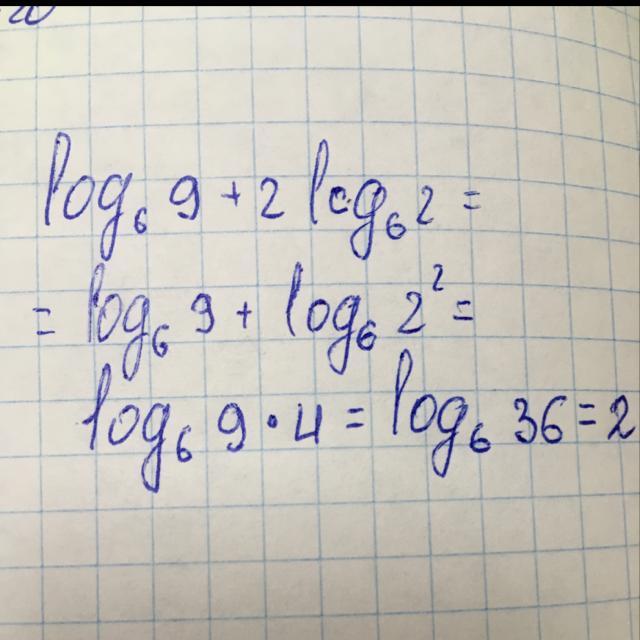 log₆ 9 + 2 log₆ 2 =
= log₆ 9 + log₆ 2² =
log₆ 9 · 4 = log₆ 36 = 2